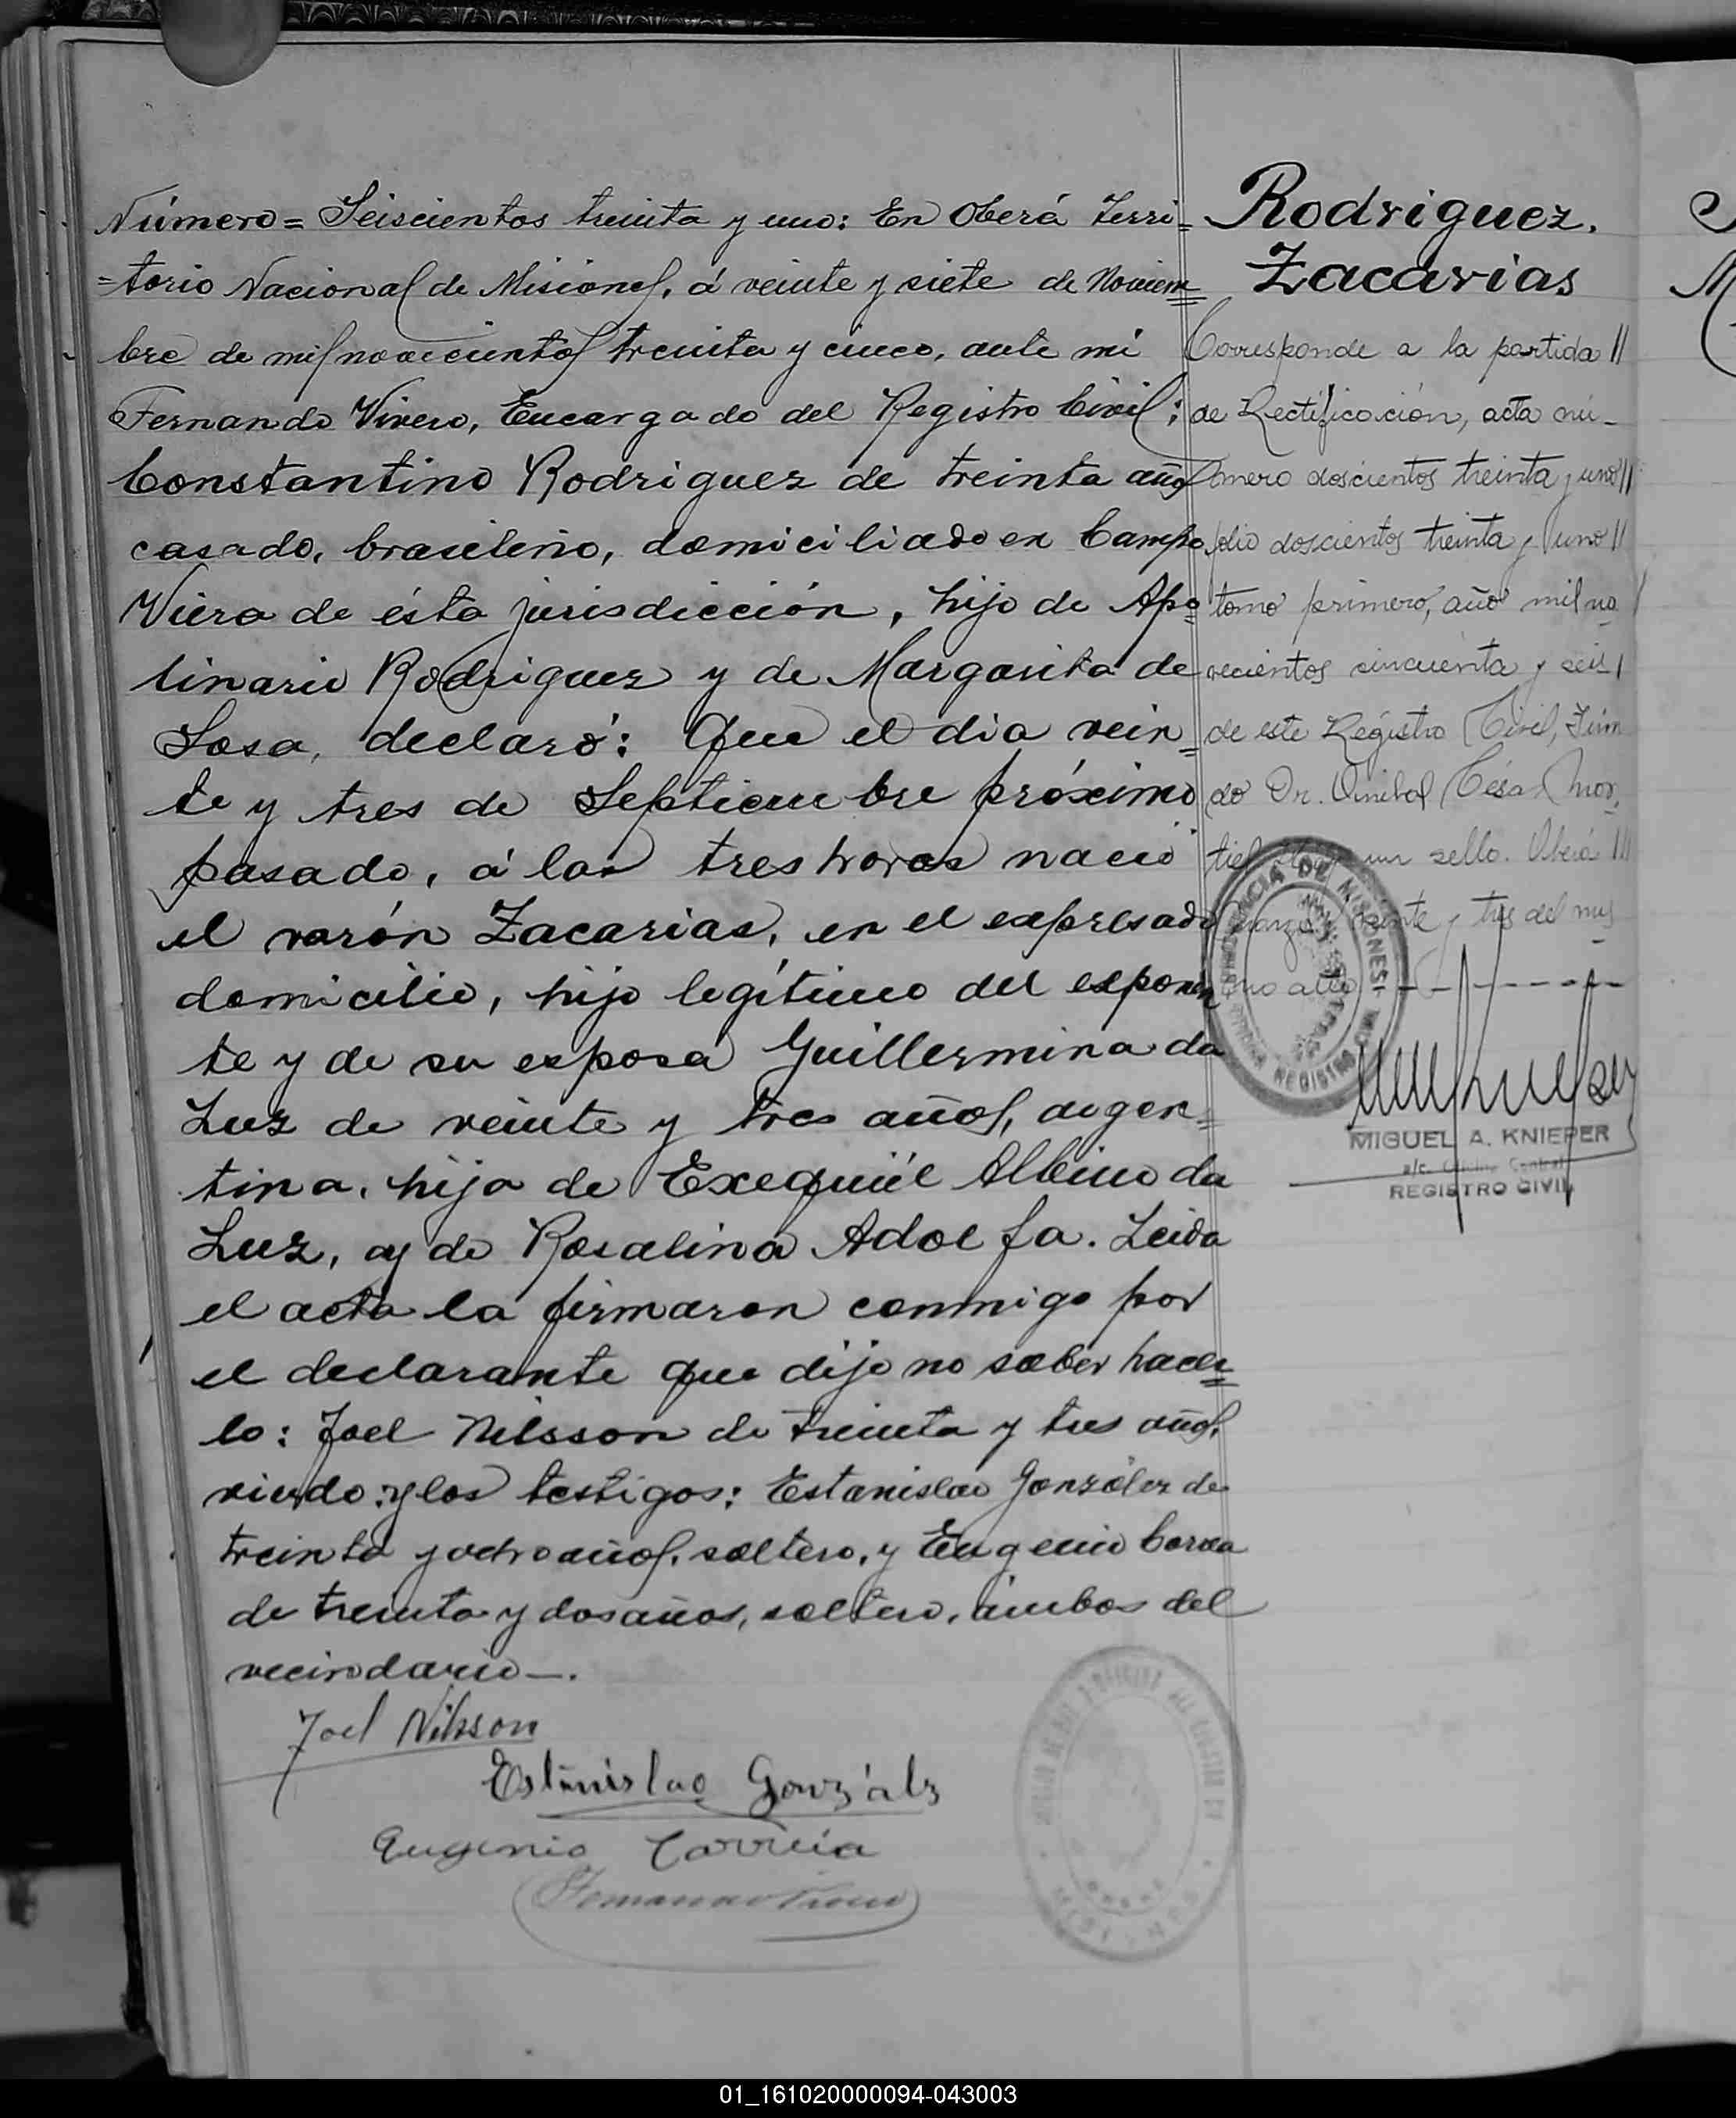 Número = Seiscientos treinta y uno: En Oberá Terri=
=torio Nacional de Misiones, á veinte y siete de Noviem=
bre de mil novecientos treinta y cinco, ante mí
Fernando Vivero, Encargado del Registro Civil;
Constantino Rodriguez de treinta años
casado, brasileño, domiciliado en Campo
Viera de ésta jurisdicción, hijo de Apo=
linario Rodriguez y de Margarita de
Sosa, declaró: Que el dia vein=
te y tres de Septiembre próximo
pasado, á las tres horas nació
el varón Zacarias, en el expresado
domicilio, hijo legítimo del exponen
te y de su esposa Guillermina da
Luz de veinte y tres años, argen=
tina, hija de Exequiél Albino da
Luz, y de Rosalina Adolfa. Leida
el acta la firmaron conmigo por
el declarante que dijo no saber hacer=
lo: Joel Nilsson de treinta y tres años,
viudo: y los testigos: Estanislao González de
treinta y ocho años, soltero, y Eugenio Correa
de treinta y dos años, soltero, ámbos del
vecindario—.
Joel Nilsson
Estanislao Gonzálz
Eugenio Correia
Fernando Vivero
Rodriguez.
Zacarias
Corresponde a la partida //
de Rectificación, acta nú-
mero doscientos treinta y uno //
folio doscientos treinta y uno //
tomo primero, año mil no
vecientos cincuenta y seis /
de este Registro Civil, Firm
do Dr. Anibal César Mon
tiel. un sello. Oberá ///
marzo veinte y tres del mis
mo año - - - - - -
PROVINCIA DE MISIONES
REGISTRO
MIGUEL A. KNIEPER
a/c. Oficina Central
REGISTRO CIVIL
01_161020000094-043003